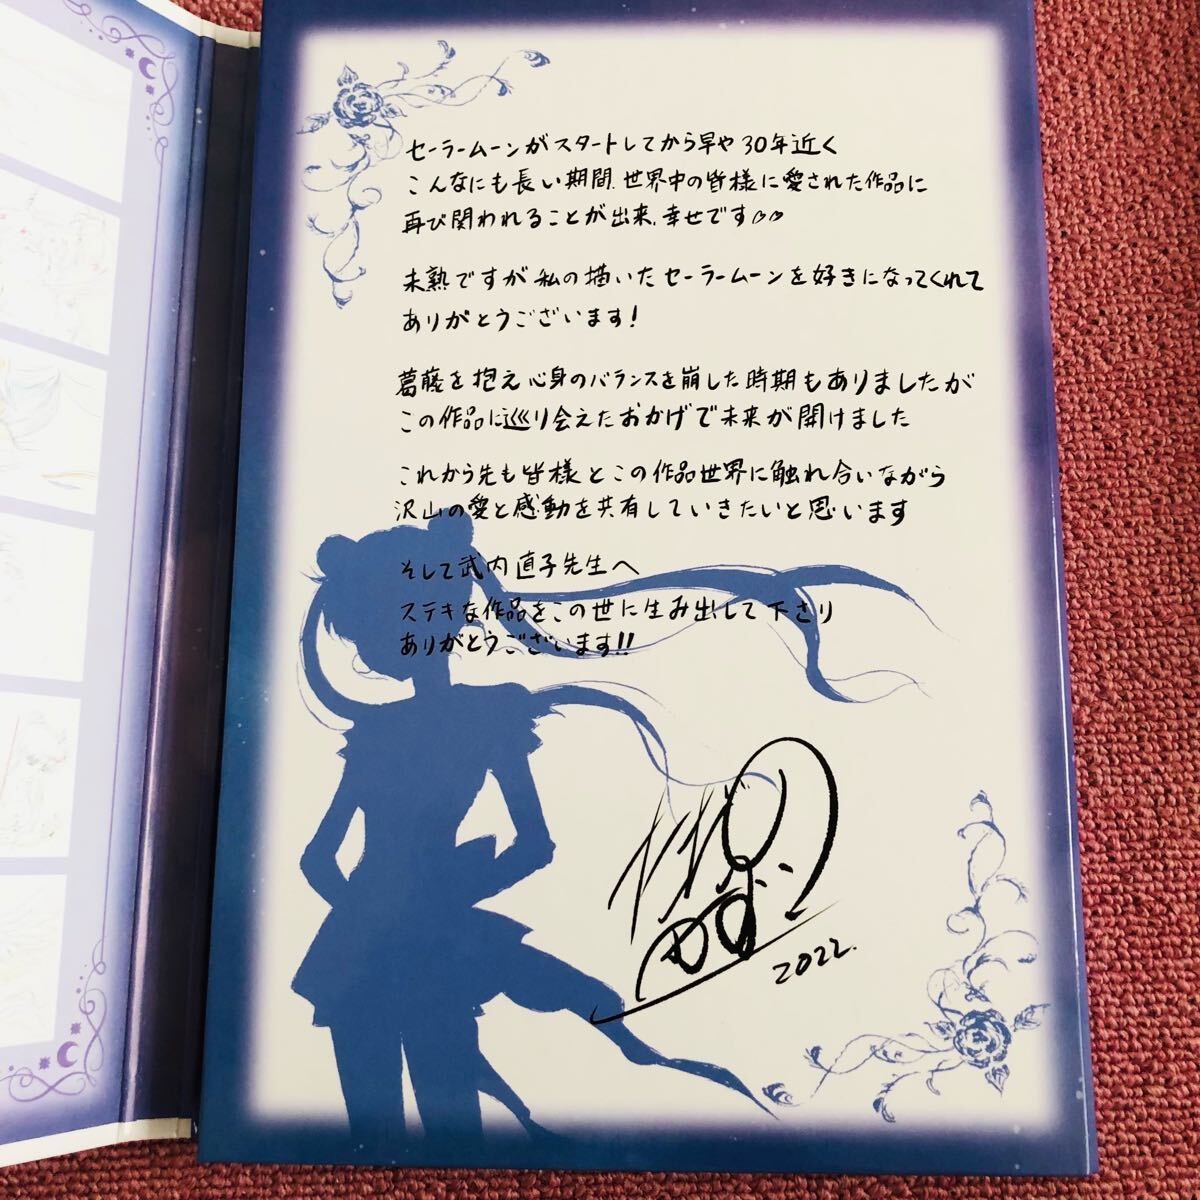 セーラームーンがスタートしてから早や30年近く
こんなにも長い期間、世界中の皆様に愛された作品に
再び関われることが出来、幸せです♡♡
未熟ですが私の描いたセーラームーンを好きになってくれて
ありがとうございます！
葛藤を抱え心身のバランスを崩した時期もありましたが
この作品に巡り会えたおかげで未来が開けました
これから先も皆様とこの作品世界に触れ合いながら
沢山の愛と感動を共有していきたいと思います
そして武内直子先生へ
ステキな作品をこの世に生み出して下さり
ありがとうございます!!
2022.